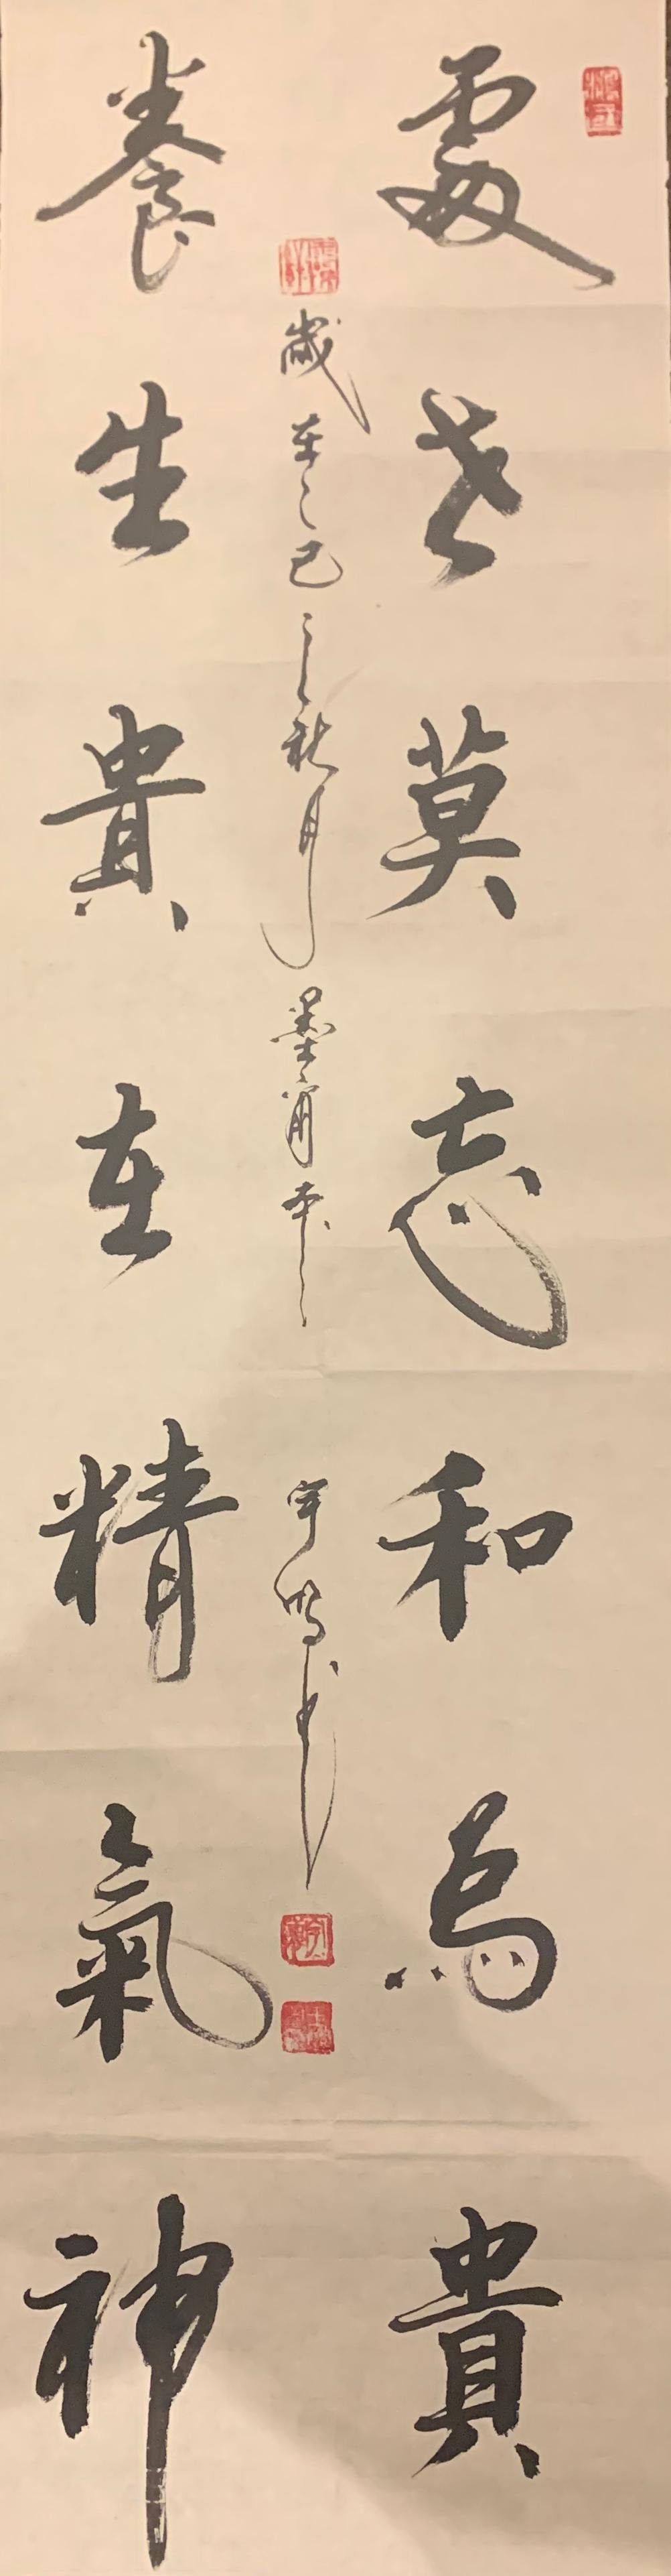 處世莫忘和為貴
養生貴在精氣神
歲在乙巳之秋月 墨甯齋 宇鴻書